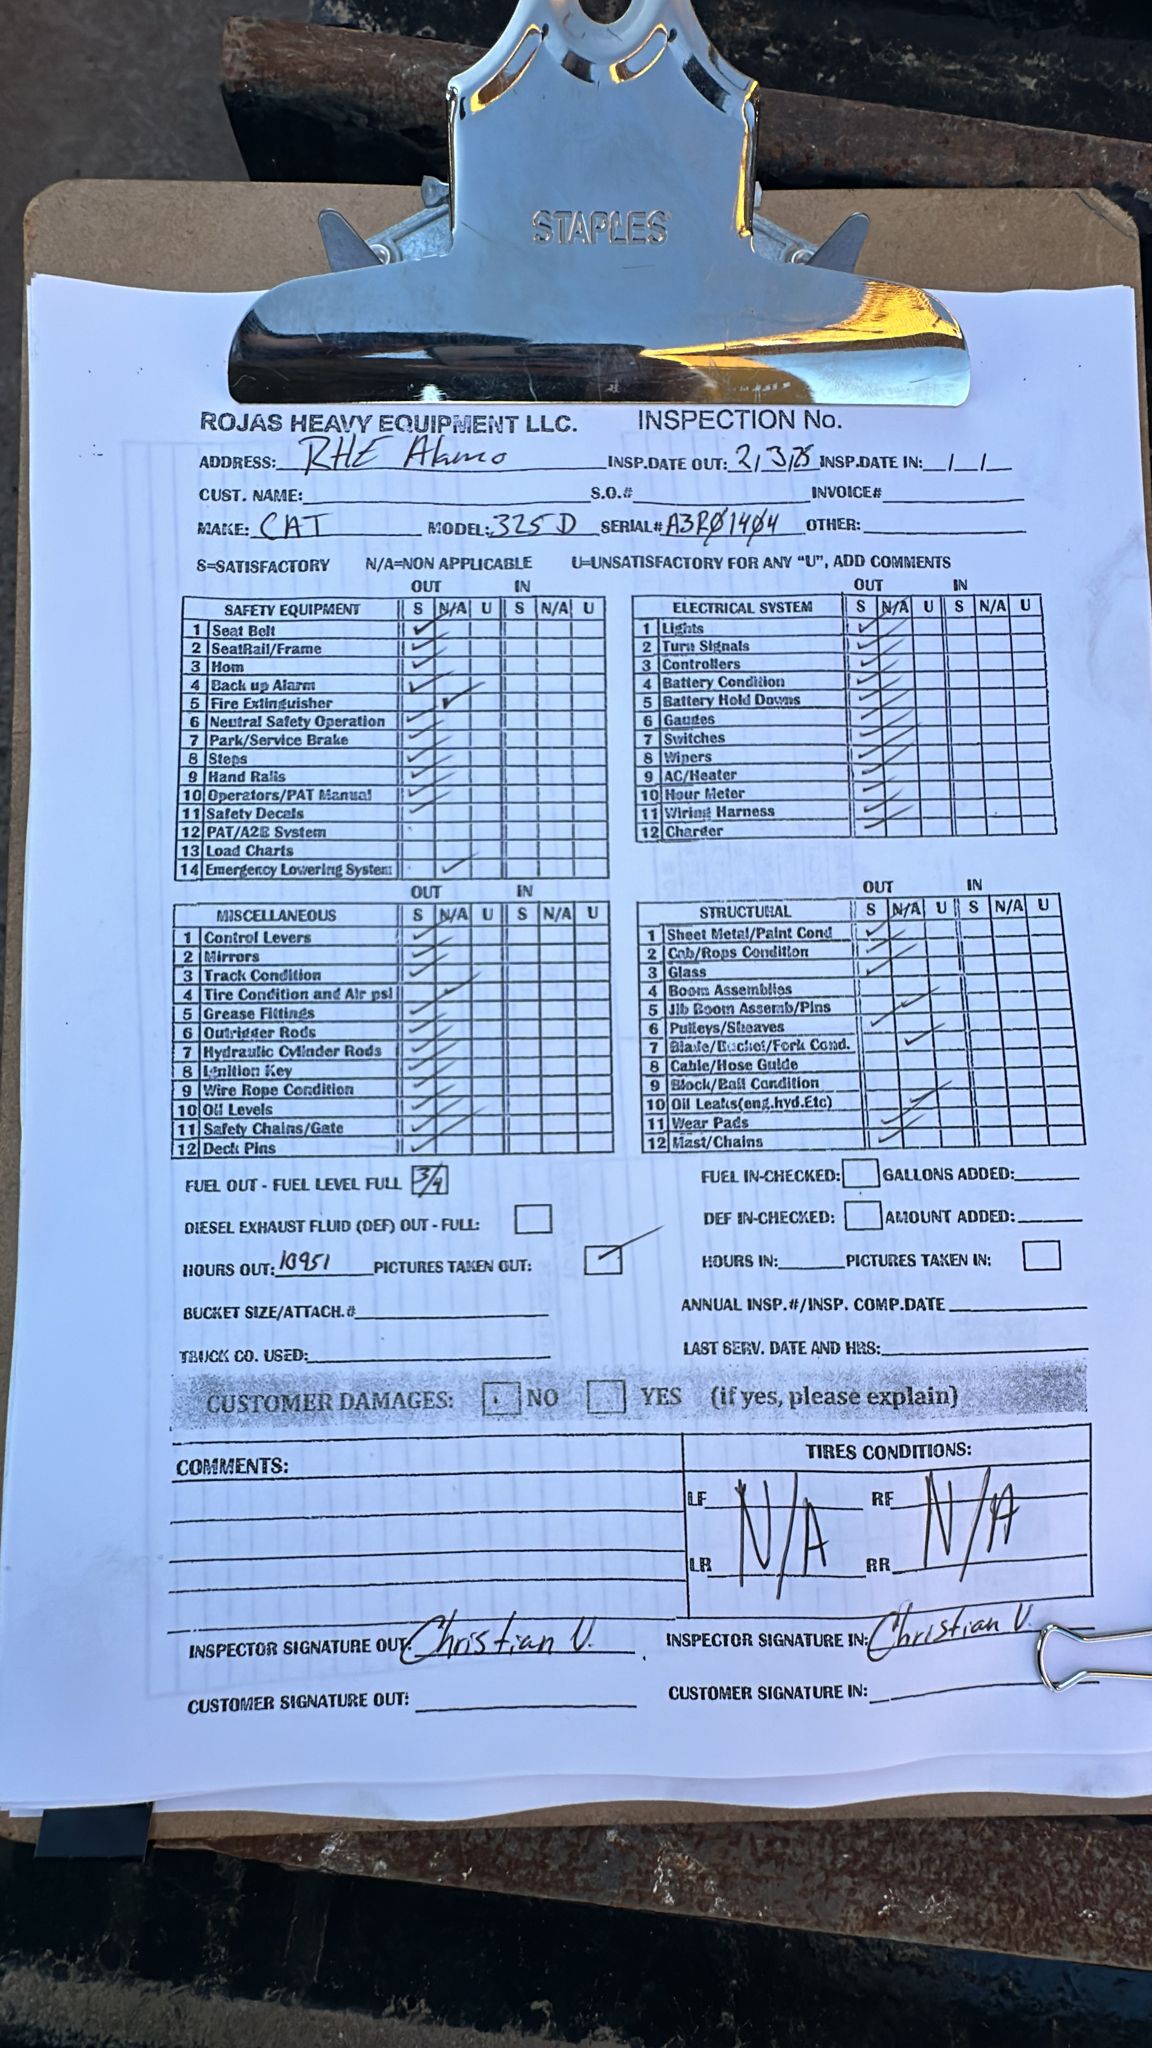 STAPLES
ROJAS HEAVY EQUIPMENT LLC. INSPECTION No.
ADDRESS: RHE Alamo INSP.DATE OUT: 2/3/25 INSP.DATE IN: / /
CUST. NAME: S.O.# INVOICE#
MAKE: CAT MODEL: 325D SERIAL# A3R01404 OTHER:
S=SATISFACTORY N/A=NON APPLICABLE U=UNSATISFACTORY FOR ANY "U", ADD COMMENTS
OUT IN
SAFETY EQUIPMENT S N/A U S N/A U
1 Seat Belt ✓
2 SeatRail/Frame ✓
3 Horn ✓
4 Back up Alarm ✓
5 Fire Extinguisher ✓
6 Neutral Safety Operation ✓
7 Park/Service Brake ✓
8 Steps ✓
9 Hand Rails ✓
10 Operators/PAT Manual ✓
11 Safety Decals ✓
12 PAT/A2B System
13 Load Charts
14 Emergency Lowering System ✓
OUT IN
ELECTRICAL SYSTEM S N/A U S N/A U
1 Lights ✓
2 Turn Signals ✓
3 Controllers ✓
4 Battery Condition ✓
5 Battery Hold Downs ✓
6 Gauges ✓
7 Switches ✓
8 Wipers ✓
9 AC/Heater ✓
10 Hour Meter ✓
11 Wiring Harness ✓
12 Charger ✓
OUT IN
MISCELLANEOUS S N/A U S N/A U
1 Control Levers ✓
2 Mirrors ✓
3 Track Condition ✓
4 Tire Condition and Air psi ✓
5 Grease Fittings ✓
6 Outrigger Rods ✓
7 Hydraulic Cylinder Rods ✓
8 Ignition Key ✓
9 Wire Rope Condition ✓
10 Oil Levels ✓
11 Safety Chains/Gate ✓
12 Deck Pins ✓
OUT IN
STRUCTURAL S N/A U S N/A U
1 Sheet Metal/Paint Cond ✓
2 Cab/Rops Condition ✓
3 Glass ✓
4 Boom Assemblies
5 Jib Boom Assemb/Pins ✓
6 Pulleys/Sheaves ✓
7 Blade/Bucket/Fork Cond. ✓
8 Cable/Hose Guide
9 Block/Ball Condition
10 Oil Leaks(eng.hyd.Etc) ✓
11 Wear Pads ✓
12 Mast/Chains ✓
FUEL OUT - FUEL LEVEL FULL 3/4 FUEL IN-CHECKED: GALLONS ADDED:
DIESEL EXHAUST FLUID (DEF) OUT - FULL: DEF IN-CHECKED: AMOUNT ADDED:
HOURS OUT: 10951 PICTURES TAKEN OUT: ✓ HOURS IN: PICTURES TAKEN IN:
BUCKET SIZE/ATTACH.# ANNUAL INSP.#/INSP. COMP.DATE
TRUCK CO. USED: LAST SERV. DATE AND HRS:
CUSTOMER DAMAGES: NO YES (if yes, please explain)
COMMENTS:
TIRES CONDITIONS:
LF N/A RF N/A
LR RR
INSPECTOR SIGNATURE OUT: Christian V. INSPECTOR SIGNATURE IN: Christian V.
CUSTOMER SIGNATURE OUT: CUSTOMER SIGNATURE IN: